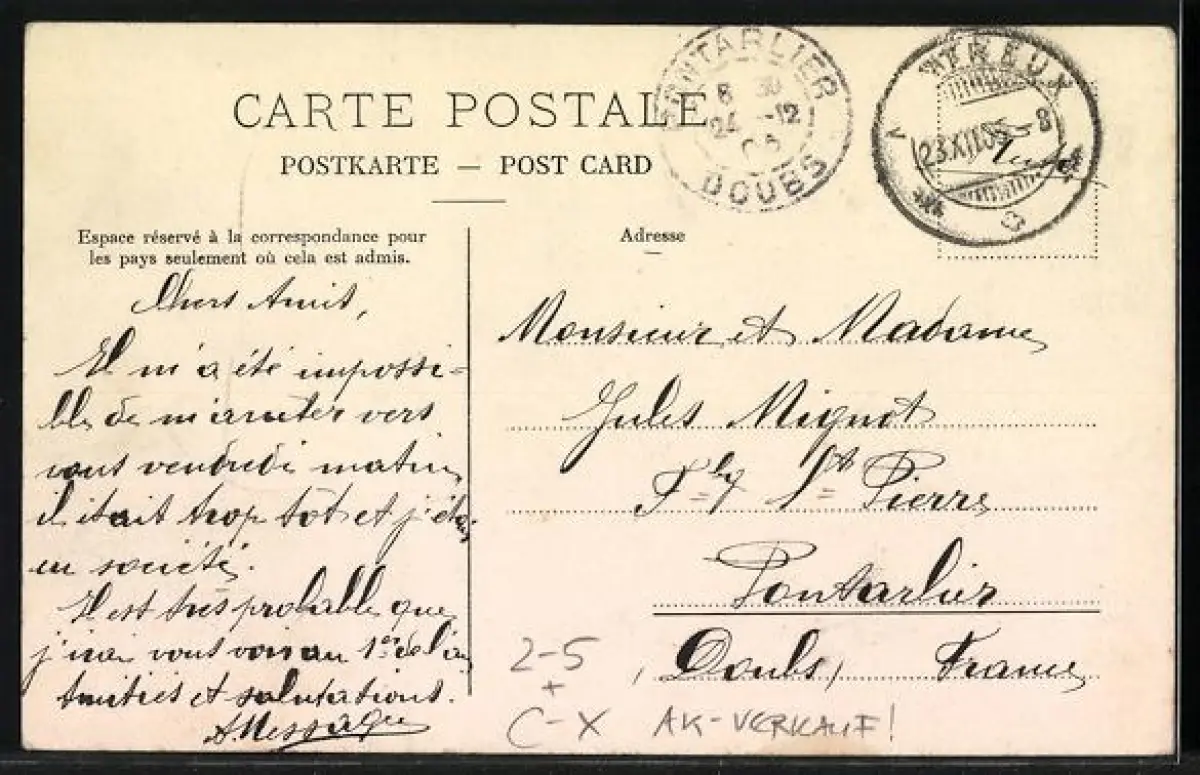 CARTE POSTALE
POSTKARTE — POST CARD
PONTARLIER
8 30
24 -12
DOUBS
TREUX
23.XII.05-8
Espace réservé à la correspondance pour
les pays seulement où cela est admis.
Adresse
Chers Amis,
Il m'a été impossi=
ble de m'arrêter vers
vous vendredi matin,
il était trop tôt et j'étais
en société.
Il est très probable que
j'irai vous voir au 1er de l'an
Amitiés et salutations.
AMessager
Monsieur et Madame
Jules Mignot
Fbg St Pierre
Pontarlier
(Doubs) France
2-5
+
C-X AK-VERKAUF!